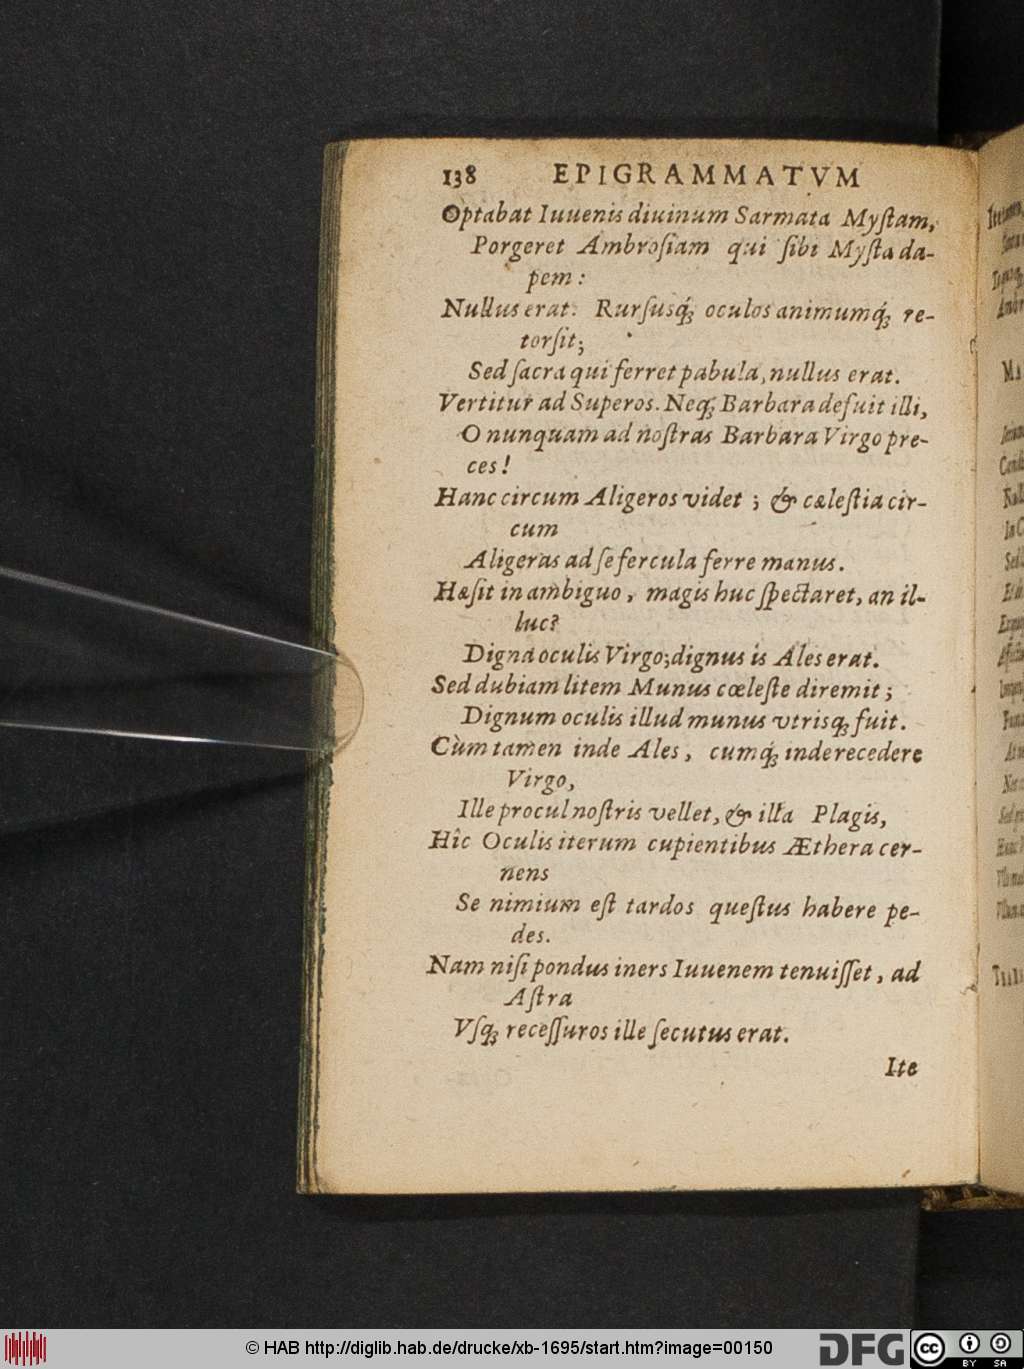 138 EPIGRAMMATVM
Optabat Iuuenis diuinum Sarmata Myſtam,
Porgeret Ambroſiam qui ſibi Myſta da-
pem:
Nullus erat: Rurſusq́; oculos animumq́; re-
torſit;
Sed ſacra qui ferret pabula, nullus erat.
Vertitur ad Superos. Neq; Barbara defuit illi,
O nunquam ad noſtras Barbara Virgo pre-
ces!
Hanc circum Aligeros videt; & cæleſtia cir-
cum
Aligeras ad ſe fercula ferre manus.
Hæſit in ambiguo, magis huc ſpectaret, an il-
luc?
Digna oculis Virgo; dignus is Ales erat.
Sed dubiam litem Munus cœleſte diremit;
Dignum oculis illud munus vtrisq; fuit.
Cùm tamen inde Ales, cumq́; inde recedere
Virgo,
Ille procul noſtris vellet, & illa Plagis,
Hîc Oculis iterum cupientibus Æthera cer-
nens
Se nimium eſt tardos queſtus habere pe-
des.
Nam niſi pondus iners Iuuenem tenuiſſet, ad
Aſtra
Vſq; receſſuros ille ſecutus erat.
Ite
© HAB http://diglib.hab.de/drucke/xb-1695/start.htm?image=00150
DFG
cc BY SA